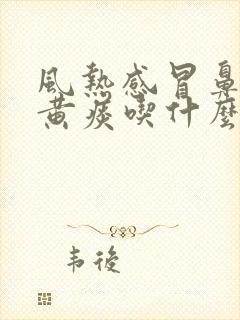 風熱感冒鼻
黃痰喫什麼
韋後